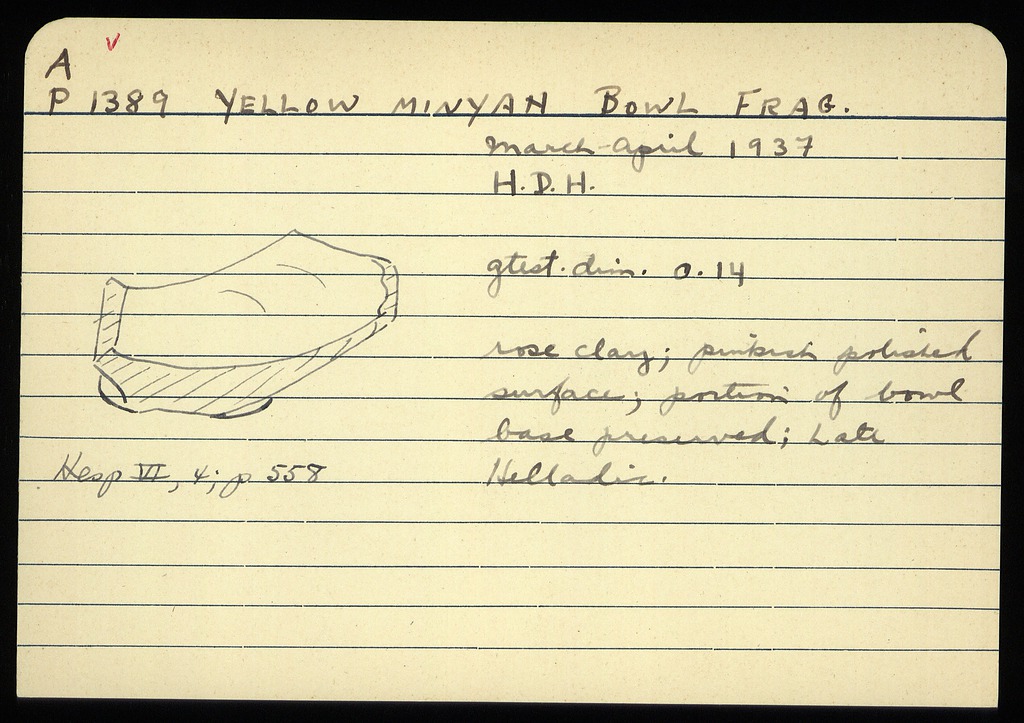 A
P 1389 YELLOW MINYAN BOWL FRAG.
March-April 1937
H.D.H.
gtest. dim. 0.14
rose clay; pinkish polished
surface; portion of bowl
base preserved; Late
Helladic.
Hesp VI, 4; p 558